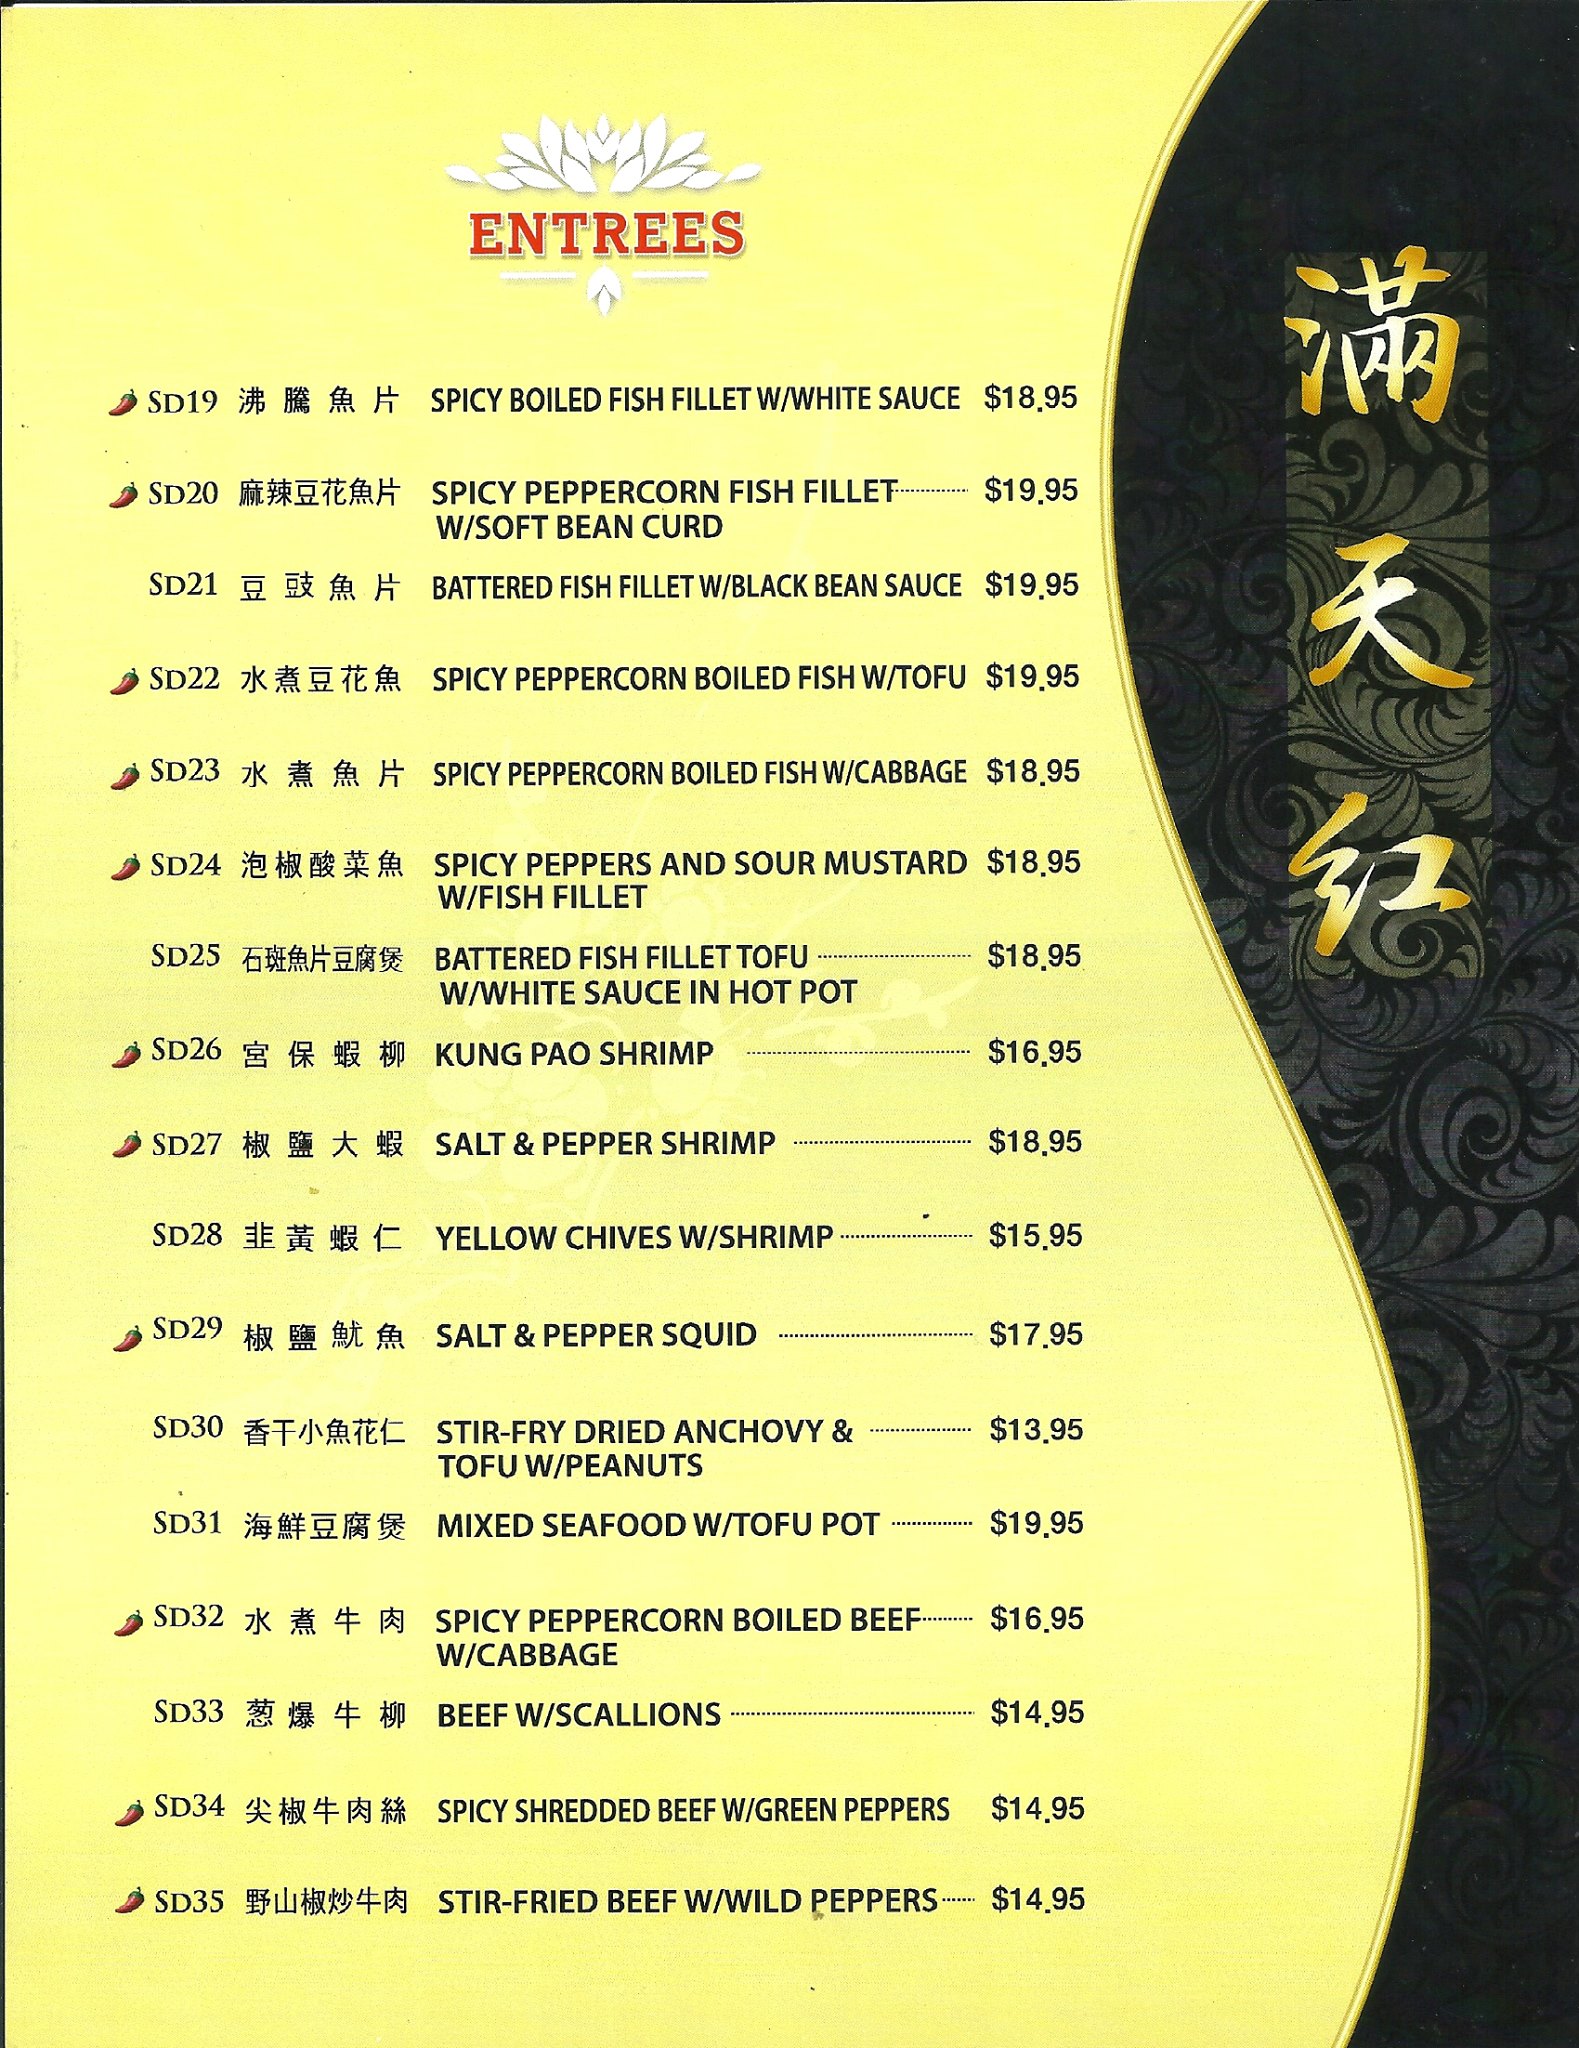 ENTREES
SD19 沸騰魚片 SPICY BOILED FISH FILLET W/WHITE SAUCE $18.95
SD20 麻辣豆花魚片 SPICY PEPPERCORN FISH FILLET $19.95
W/SOFT BEAN CURD
SD21 豆豉魚片 BATTERED FISH FILLET W/BLACK BEAN SAUCE $19.95
SD22 水煮豆花魚 SPICY PEPPERCORN BOILED FISH W/TOFU $19.95
SD23 水煮魚片 SPICY PEPPERCORN BOILED FISH W/CABBAGE $18.95
SD24 泡椒酸菜魚 SPICY PEPPERS AND SOUR MUSTARD $18.95
W/FISH FILLET
SD25 石斑魚片豆腐煲 BATTERED FISH FILLET TOFU $18.95
W/WHITE SAUCE IN HOT POT
SD26 宮保蝦柳 KUNG PAO SHRIMP $16.95
SD27 椒鹽大蝦 SALT & PEPPER SHRIMP $18.95
SD28 韭黃蝦仁 YELLOW CHIVES W/SHRIMP $15.95
SD29 椒鹽魷魚 SALT & PEPPER SQUID $17.95
SD30 香干小魚花仁 STIR-FRY DRIED ANCHOVY & $13.95
TOFU W/PEANUTS
SD31 海鮮豆腐煲 MIXED SEAFOOD W/TOFU POT $19.95
SD32 水煮牛肉 SPICY PEPPERCORN BOILED BEEF $16.95
W/CABBAGE
SD33 葱爆牛柳 BEEF W/SCALLIONS $14.95
SD34 尖椒牛肉絲 SPICY SHREDDED BEEF W/GREEN PEPPERS $14.95
SD35 野山椒炒牛肉 STIR-FRIED BEEF W/WILD PEPPERS $14.95
滿天紅